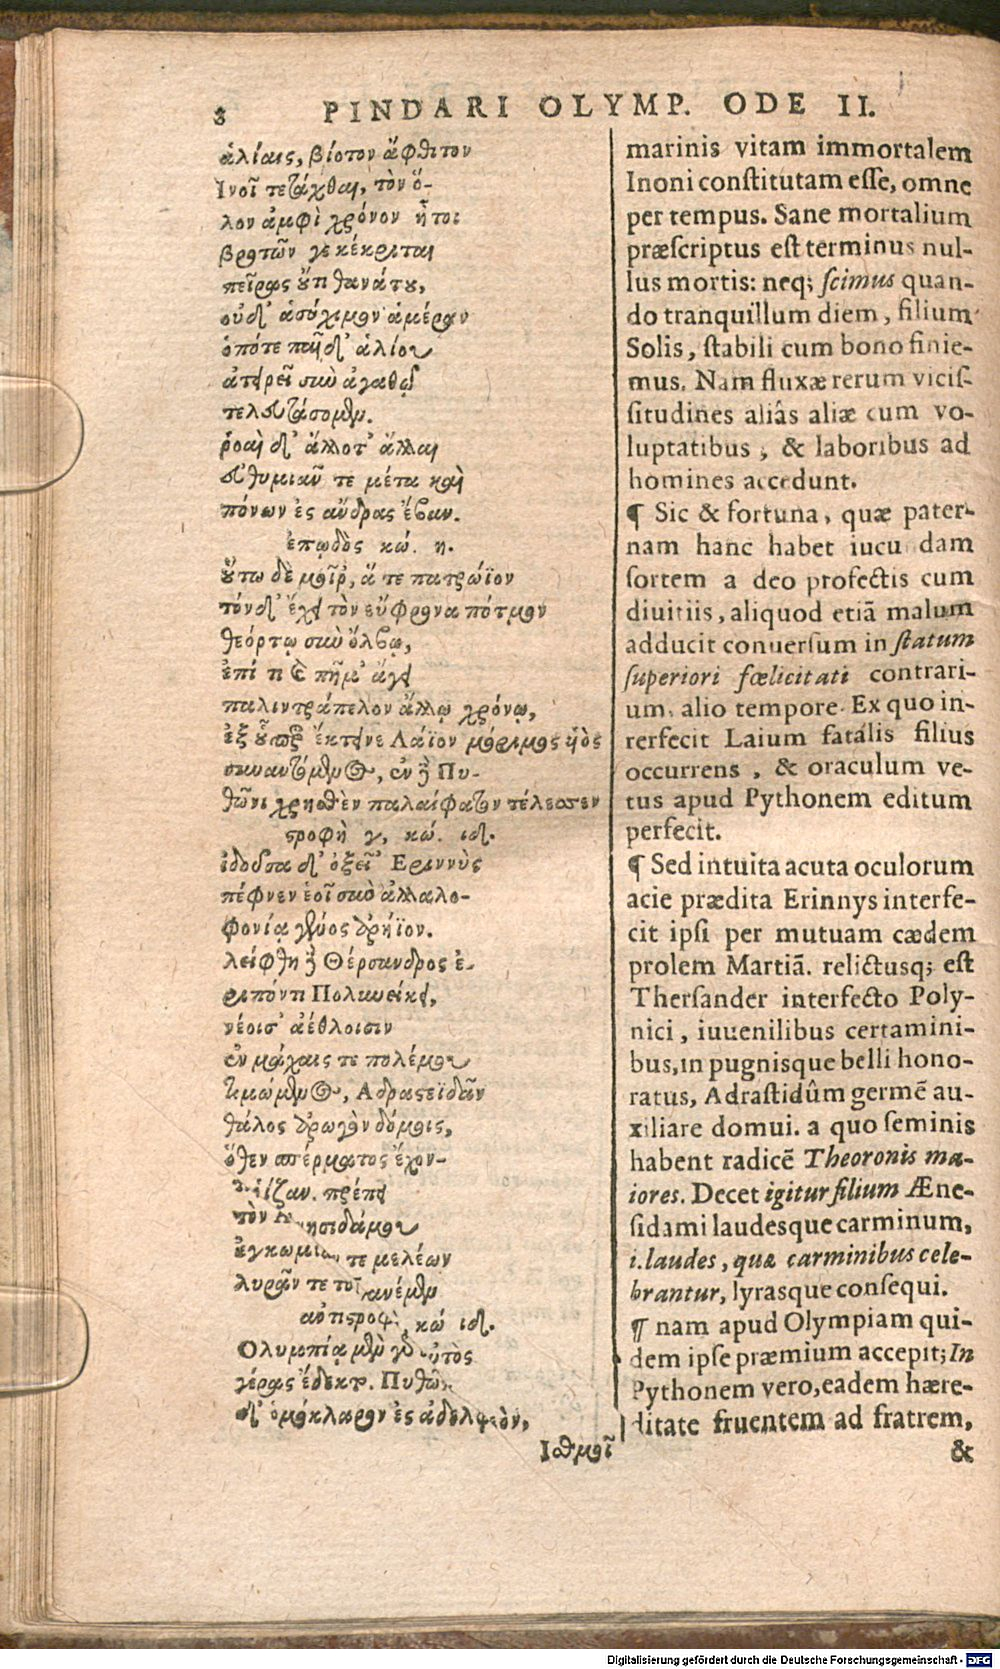 8 PINDARI OLYMP. ODE II.
ἁλίαις, βίοτον ἄφθιτον
Ἰνοῖ τετάχθαι, τὸν ὅ-
λον ἀμφὶ χρόνον ἤτοι
βροτῶν γε κέκριται
πεῖρας οὔ τι θανάτου,
οὐδ' ἁσύχιμον ἁμέραν
ὁπότε παῖδ' ἁλίου
ἀτειρεῖ σὺν ἀγαθῷ
τελευτάσομεν.
ῥοαὶ δ' ἄλλοτ' ἄλλαι
εὐθυμιᾶν τε μέτα καὶ
πόνων ἐς ἄνδρας ἔβαν.
ἐπῳδὸς κώ. η.
οὕτω δὲ μοῖρ, ἅ τε πατρώϊον
τόνδ' ἔχει τὸν εὔφρονα πότμον
θεόρτῳ σὺν ὄλβῳ,
ἐπί τι καὶ πῆμ' ἄγει
παλιντράπελον ἄλλῳ χρόνῳ,
ἐξ οὗπερ ἔκτεινε Λάϊον μόριμος ἡὸς
συναντόμενος, ἐν δὲ Πυ-
θῶνι χρησθὲν παλαίφατον τέλεσσεν
στροφὴ γ, κώ. ιδ.
ἰδοῦσα δ' ὀξεῖ' Εριννὺς
πέφνεν ἑοῖ σὺν ἀλλαλο-
φονίᾳ γένος ἀρήϊον.
λείφθη δὲ Θέρσανδρος ἐ-
ριπόντι Πολυνείκει,
νέοις' ἀέθλοισιν
ἐν μάχαις τε πολέμου
τιμώμενος, Αδραστειδᾶν
θάλος ἀρωγὸν δόμοις,
ὅθεν σπέρματος ἔχον-
ῥίζαν. πρέπει
τὸν Αἰνησιδάμου
ἐγκωμίων τε μελέων
λυρᾶν τε τυγχανέμεν
ἀντιστροφὴ, κώ ιδ.
Ολυμπίᾳ μὲν γὸ αὐτὸς
γέρας ἔδεκτ. Πυθῶνι
δ' ὁμόκλαρον ἐς ἀδελφεὸν,
Ισθμοῖ
marinis vitam immortalem
Inoni constitutam esse, omne
per tempus. Sane mortalium
præscriptus est terminus nul-
lus mortis: neq; scimus quan-
do tranquillum diem, filium
Solis, stabili cum bono finie-
mus. Nam fluxæ rerum vicis-
situdines aliâs aliæ cum vo-
luptatibus, & laboribus ad
homines accedunt.
¶ Sic & fortuna, quæ pater-
nam hanc habet iucu dam
sortem a deo profectis cum
diuitiis, aliquod etiã malum
adducit conuersum in statum
superiori fœlicitati contrari-
um, alio tempore. Ex quo in-
rerfecit Laium fatalis filius
occurrens, & oraculum ve-
tus apud Pythonem editum
perfecit.
¶ Sed intuita acuta oculorum
acie prædita Erinnys interfe-
cit ipsi per mutuam cædem
prolem Martiã. relictusq; est
Thersander interfecto Poly-
nici, iuuenilibus certamini-
bus, in pugnisque belli hono-
ratus, Adrastidûm germẽ au-
xiliare domui. a quo seminis
habent radicẽ Theoronis ma-
iores. Decet igitur filium Æne-
sidami laudesque carminum,
i. laudes, quæ carminibus cele-
brantur, lyrasque consequi.
¶ nam apud Olympiam qui-
dem ipse præmium accepit; In
Pythonem vero, eadem hære-
ditate fruentem ad fratrem,
&
Digitalisierung gefördert durch die Deutsche Forschungsgemeinschaft - DFG